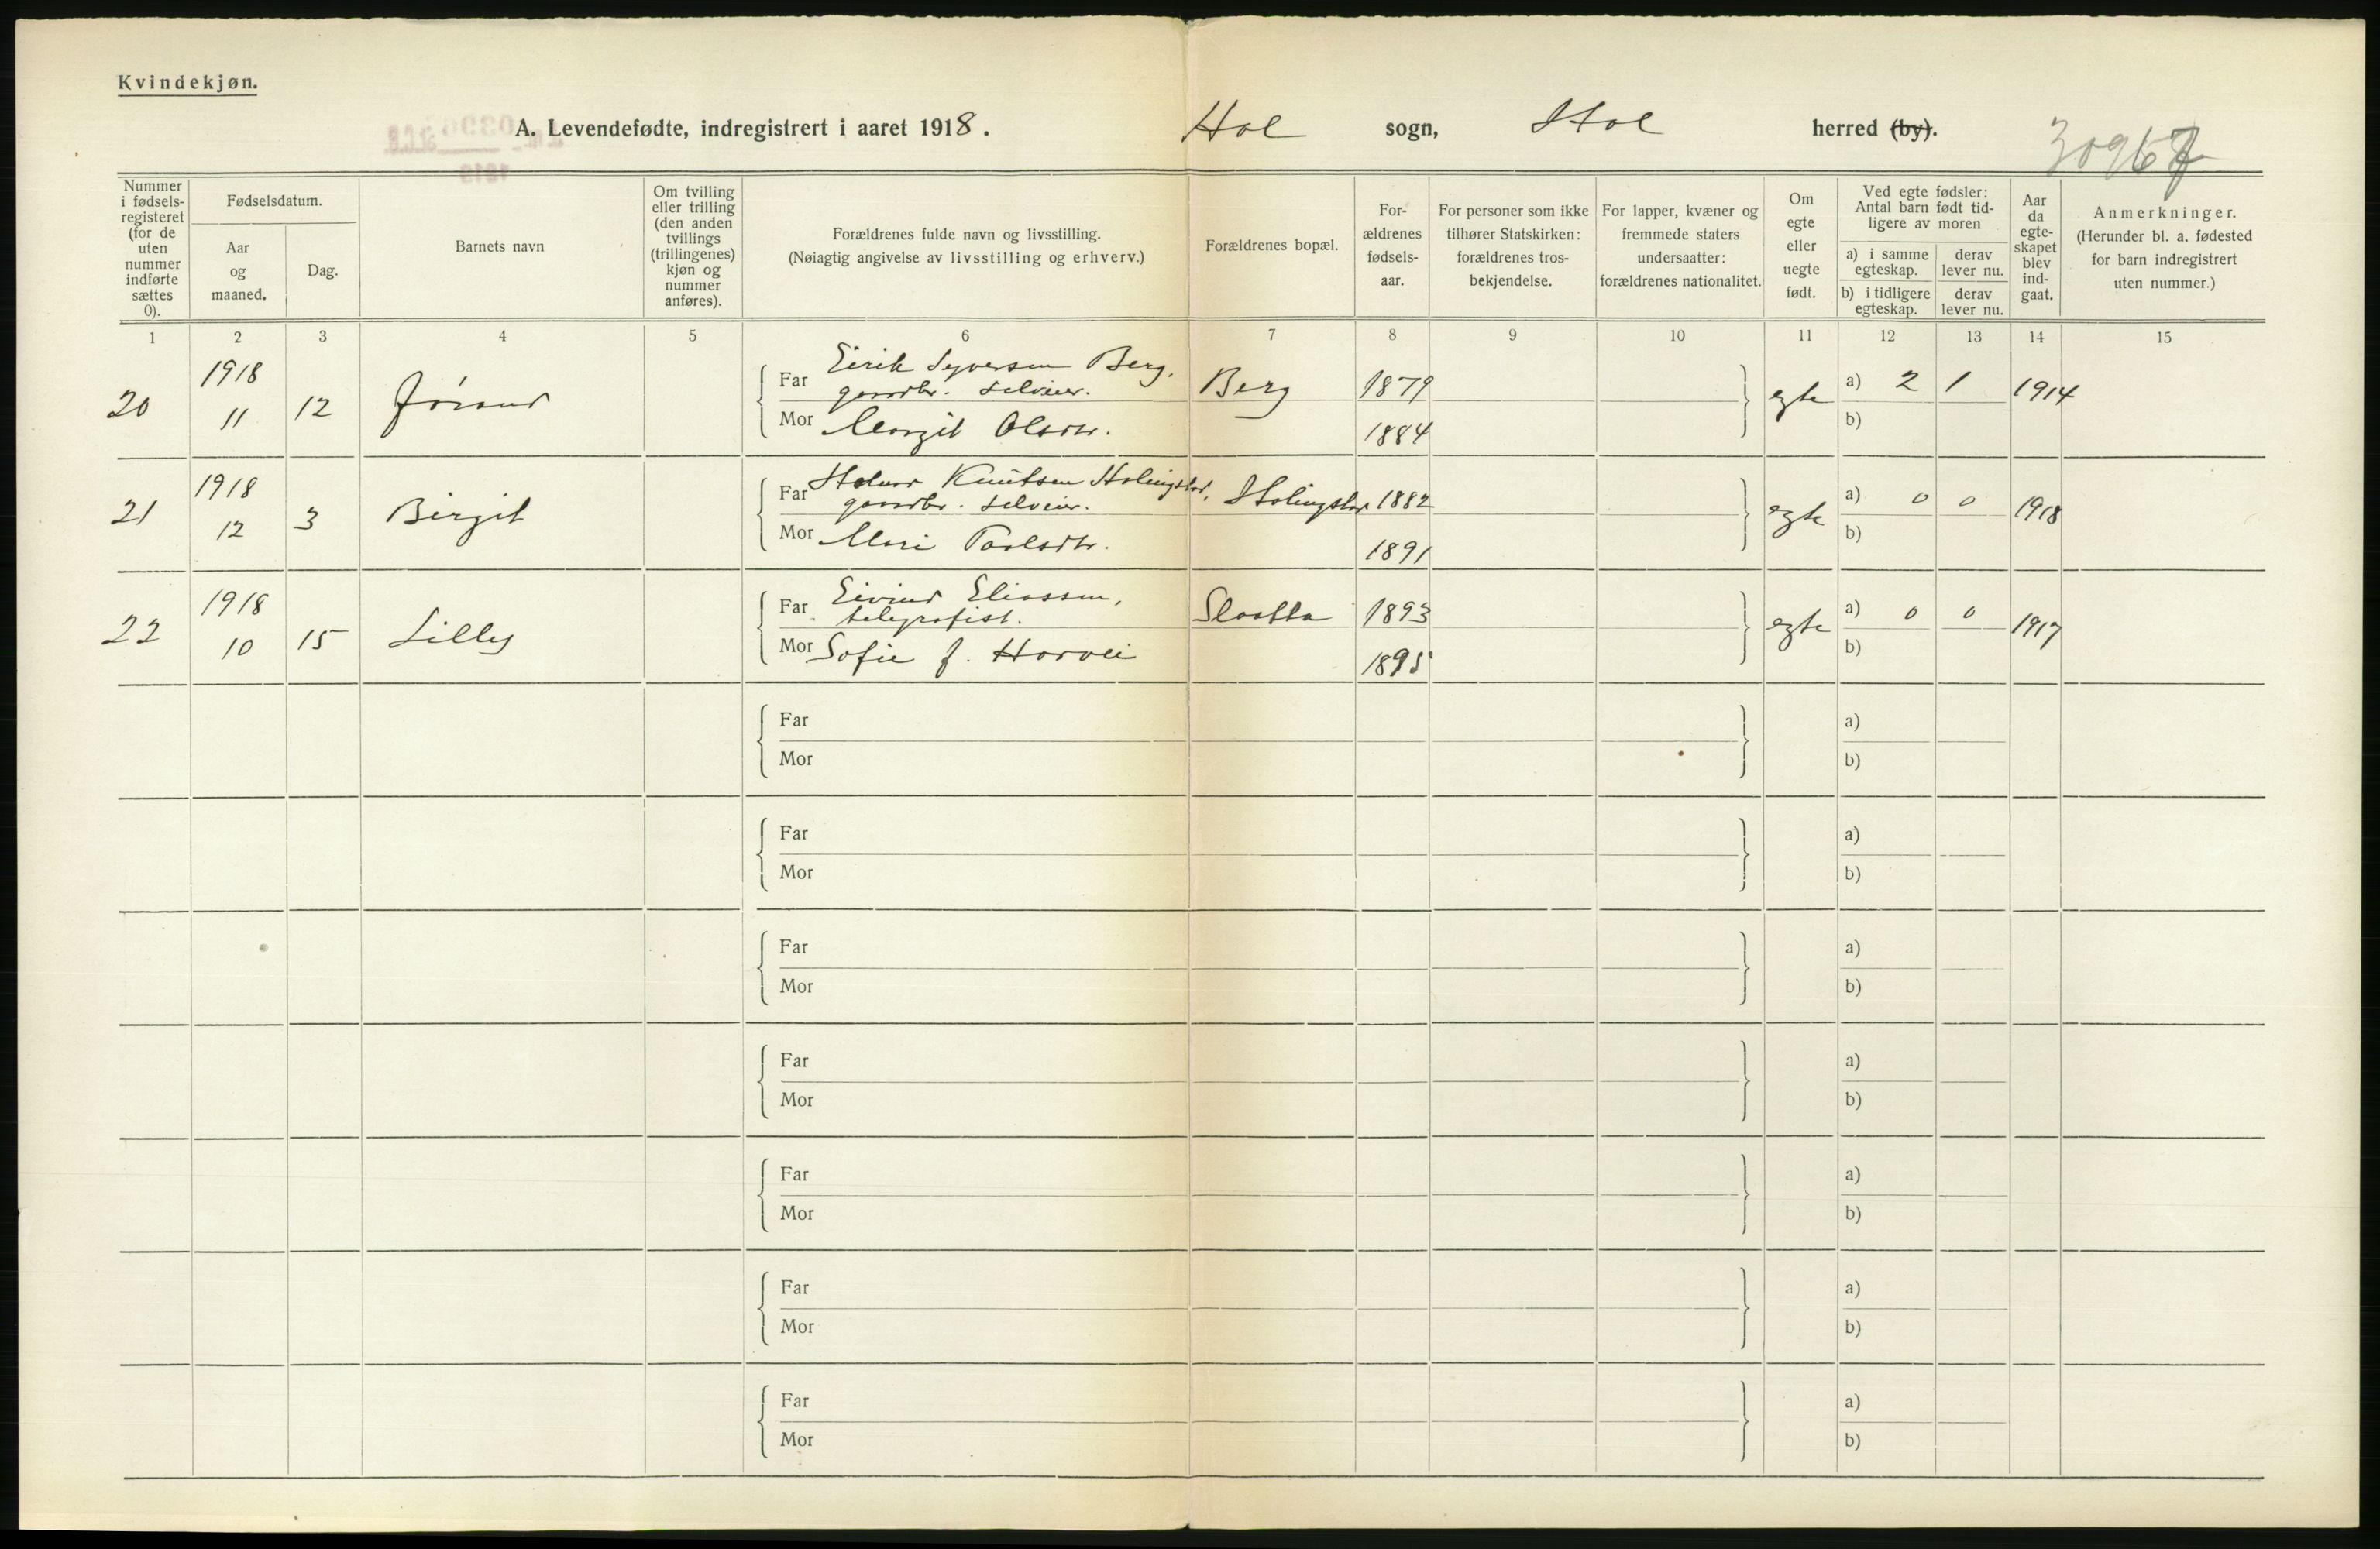 Kvindekjøn.
A. Levendefødte, indregistrert i aaret 1918. Hol sogn, Hol herred (by).
30967
Nummer i fødselsregisteret (for de uten nummer indførte sættes 0).
Fødselsdatum.
Aar og maaned.
Dag.
Barnets navn
Om tvilling eller trilling (den anden tvillings (trillingenes) kjøn og nummer anføres).
Forældrenes fulde navn og livsstilling.
(Nøiagtig angivelse av livsstilling og erhverv.)
Forældrenes bopæl.
Forældrenes fødselsaar.
For personer som ikke tilhører Statskirken: forældrenes trosbekjendelse.
For lapper, kvæner og fremmede staters undersaatter: forældrenes nationalitet.
Om egte eller uegte født.
Ved egte fødsler: Antal barn født tidligere av moren
a) i samme egteskap.
derav lever nu.
b) i tidligere egteskap.
derav lever nu.
Aar da egteskapet blev indgaat.
Anmerkninger.
(Herunder bl. a. fødested for barn indregistrert uten nummer.)
1 2 3 4 5 6 7 8 9 10 11 12 13 14 15
20 1918 11 12 Jórand
Far Eirik Syversen Berg, gaardbr. selveier. Berg 1879 egte a) 2 1 1914
Mor Margit Olsdtr. 1884 b)
21 1918 12 3 Birgit
Far Knutsen gaardbr. selveier. 1882 egte a) 0 0 1918
Mor Mari Paalsdtr. 1891 b)
22 1918 10 15 Lilly
Far Eivind Eliassen, telegrafist. Slaatta 1893 egte a) 0 0 1917
Mor Sofie J. Horvei 1895 b)
Far a)
Mor b)
Far a)
Mor b)
Far a)
Mor b)
Far a)
Mor b)
Far a)
Mor b)
Far a)
Mor b)
Far a)
Mor b)